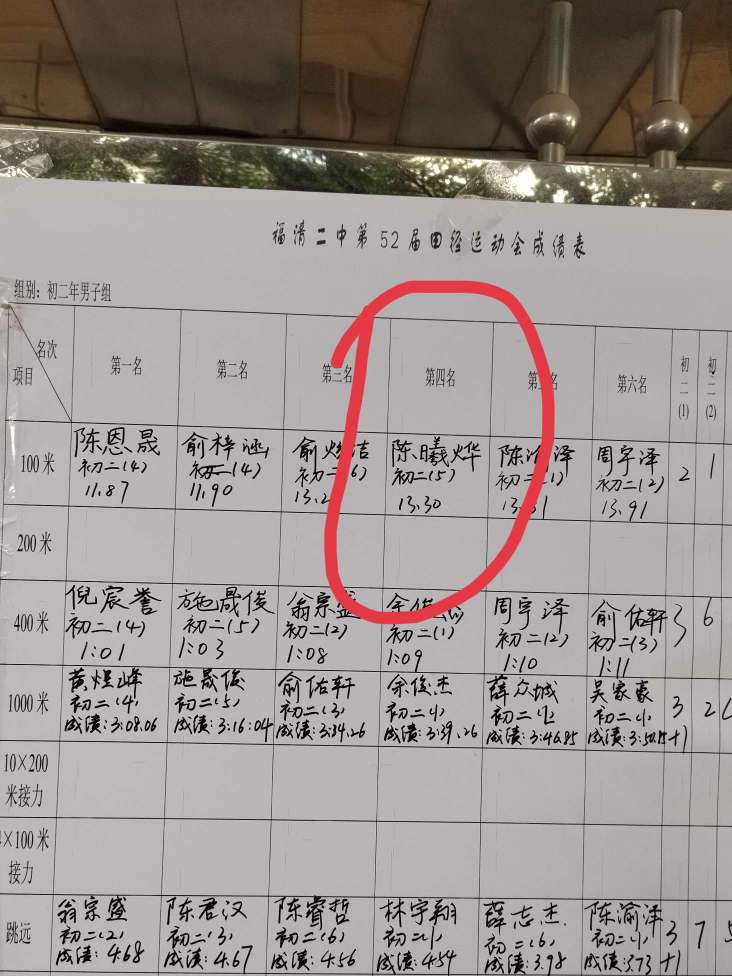 福清二中第52届田径运动会成绩表
组别：初二年男子组
名次 项目 第一名 第二名 第三名 第四名 第六名 初二(1) 初二(2)
100米
陈恩晟 俞梓涵 陈曦烨 周宇泽
初二(4) 初二(4) 初二(6) 初二(5) 初二(1) 初二(2) 2 1
11.87 11.90 13.2 13.30 13.91
200米
400米
倪宸誉 施晟俊 翁宗盛 周宇泽 俞佑轩
初二(4) 初二(5) 初二(2) 初二(1) 初二(2) 初二(3) 3 6
1:01 1:03 1:08 1:09 1:10 1:11
1000米
黄煜峰 施晟俊 俞佑轩 余俊杰 薛众城 吴家豪
初二(4) 初二(5) 初二(3) 初二(1) 初二(1) 初二(1) 3 2
成绩:3:08.06 成绩:3:16:04 成绩:3:34.26 成绩:3:39.26 成绩:3:46.85 成绩:3:50.15 +1
10×200
米接力
×100米
接力
跳远
翁宗盛 陈君汉 陈睿哲 林宇翔 薛志杰 陈渝泽
初二(2) 初二(3) 初二(6) 初二(1) 初二(6) 初二(1) 3 7
成绩:4.68 成绩:4.67 成绩:4.56 成绩:4.54 成绩:3.98 成绩:3.73 +1